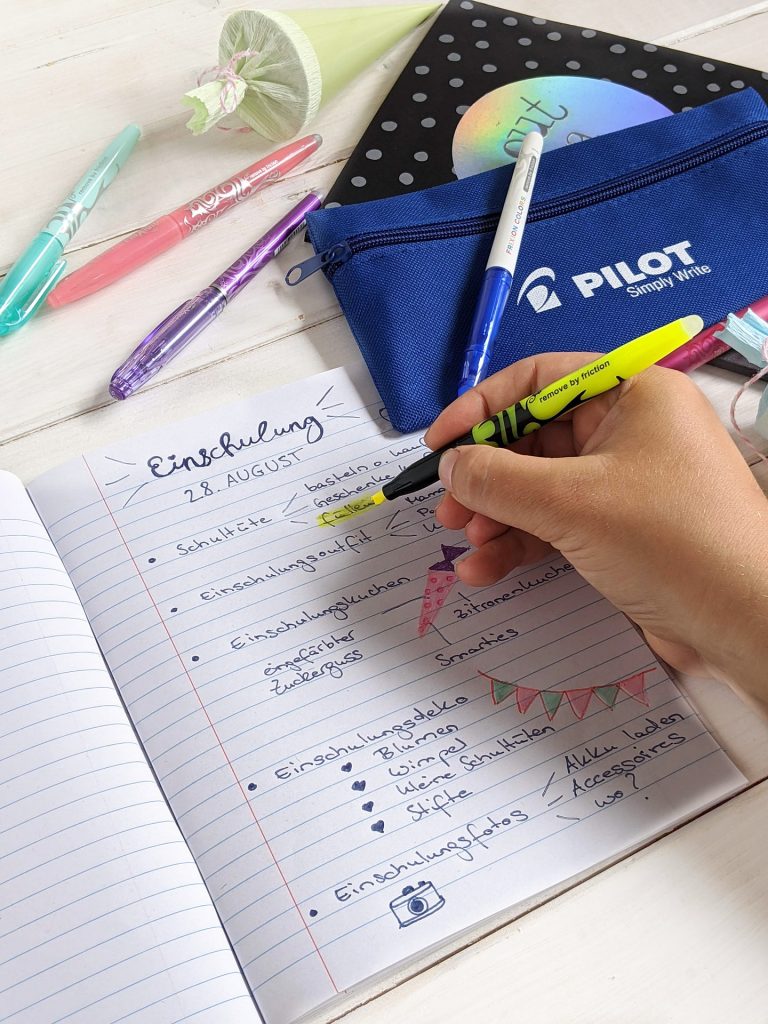 PILOT
Simply Write
FRIXION COLORS
remove by friction
Einschulung
28. AUGUST
• Schultüte
basteln o.
Geschenke
füllen
• Einschulungsoutfit
• Einschulungskuchen
eingefärbter
Zuckerguss
Zitronenkuchen
Smarties
• Einschulungsdeko
♥ Blumen
♥ Wimpel
♥ kleine Schultüten
♥ Stifte
• Einschulungsfotos
Akku laden
Accessoires
wo?